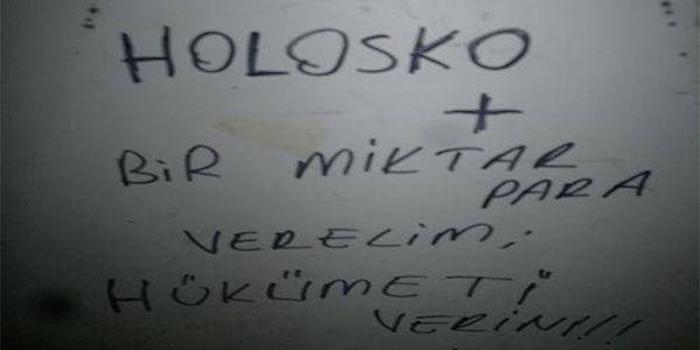 HOLOSKO
+
BİR MİKTAR
PARA
VERELİM;
HÜKÜMETİ
VERİN!!!